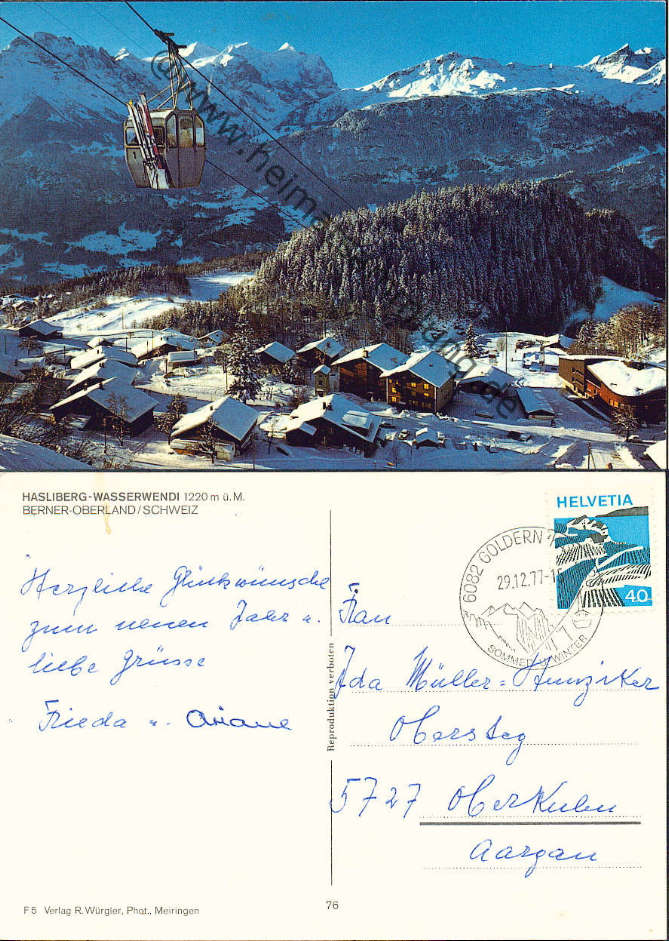 © www.heimatsammlung.de
HASLIBERG-WASSERWENDI 1220 m ü.M.
BERNER-OBERLAND/SCHWEIZ
Herzliche Glückwünsche
zum neuen Jahr u.
liebe Grüsse
Frieda u. Ariane
F5 Verlag R. Würgler, Phot., Meiringen
Reproduktion verboten
76
HELVETIA
40
6082 GOLDERN
29.12.77
SOMMER WINTER
Frau
Ida Müller=Hunziker
Obersteg
5727 Oberkulm
Aargau